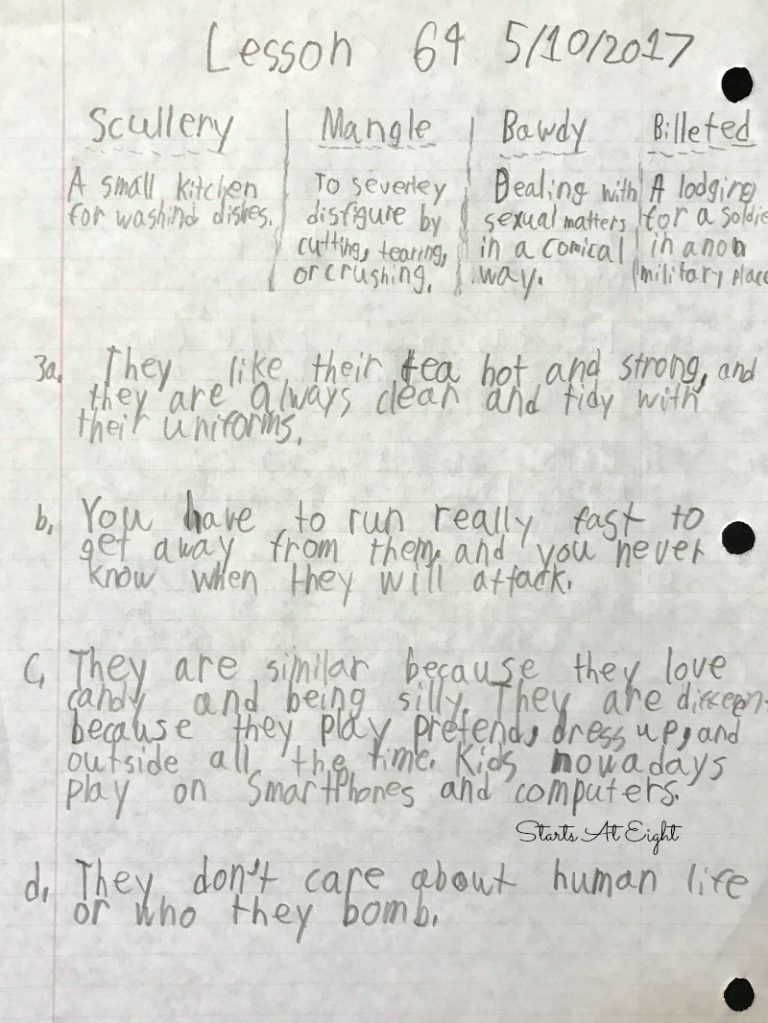 Lesson 64 5/10/2017
Scullery Mangle Bawdy Billeted
A small kitchen
for washind dishes.
To severley
disfigure by
cutting, tearing,
or crushing.
Dealing with
sexual matters
in a comical
way.
A lodging
for a soldie
in a non
military place
3a. They like their tea hot and strong, and
they are always clean and tidy with
their uniforms.
b. You have to run really fast to
get away from them, and you never
know when they will attack.
C. They are similar because they love
candy and being silly. They are differen
because they play pretend, dress up, and
outside all the time. Kids nowadays
play on SmartPhones and computers.
Starts At Eight
d. They don't care about human life
or who they bomb.